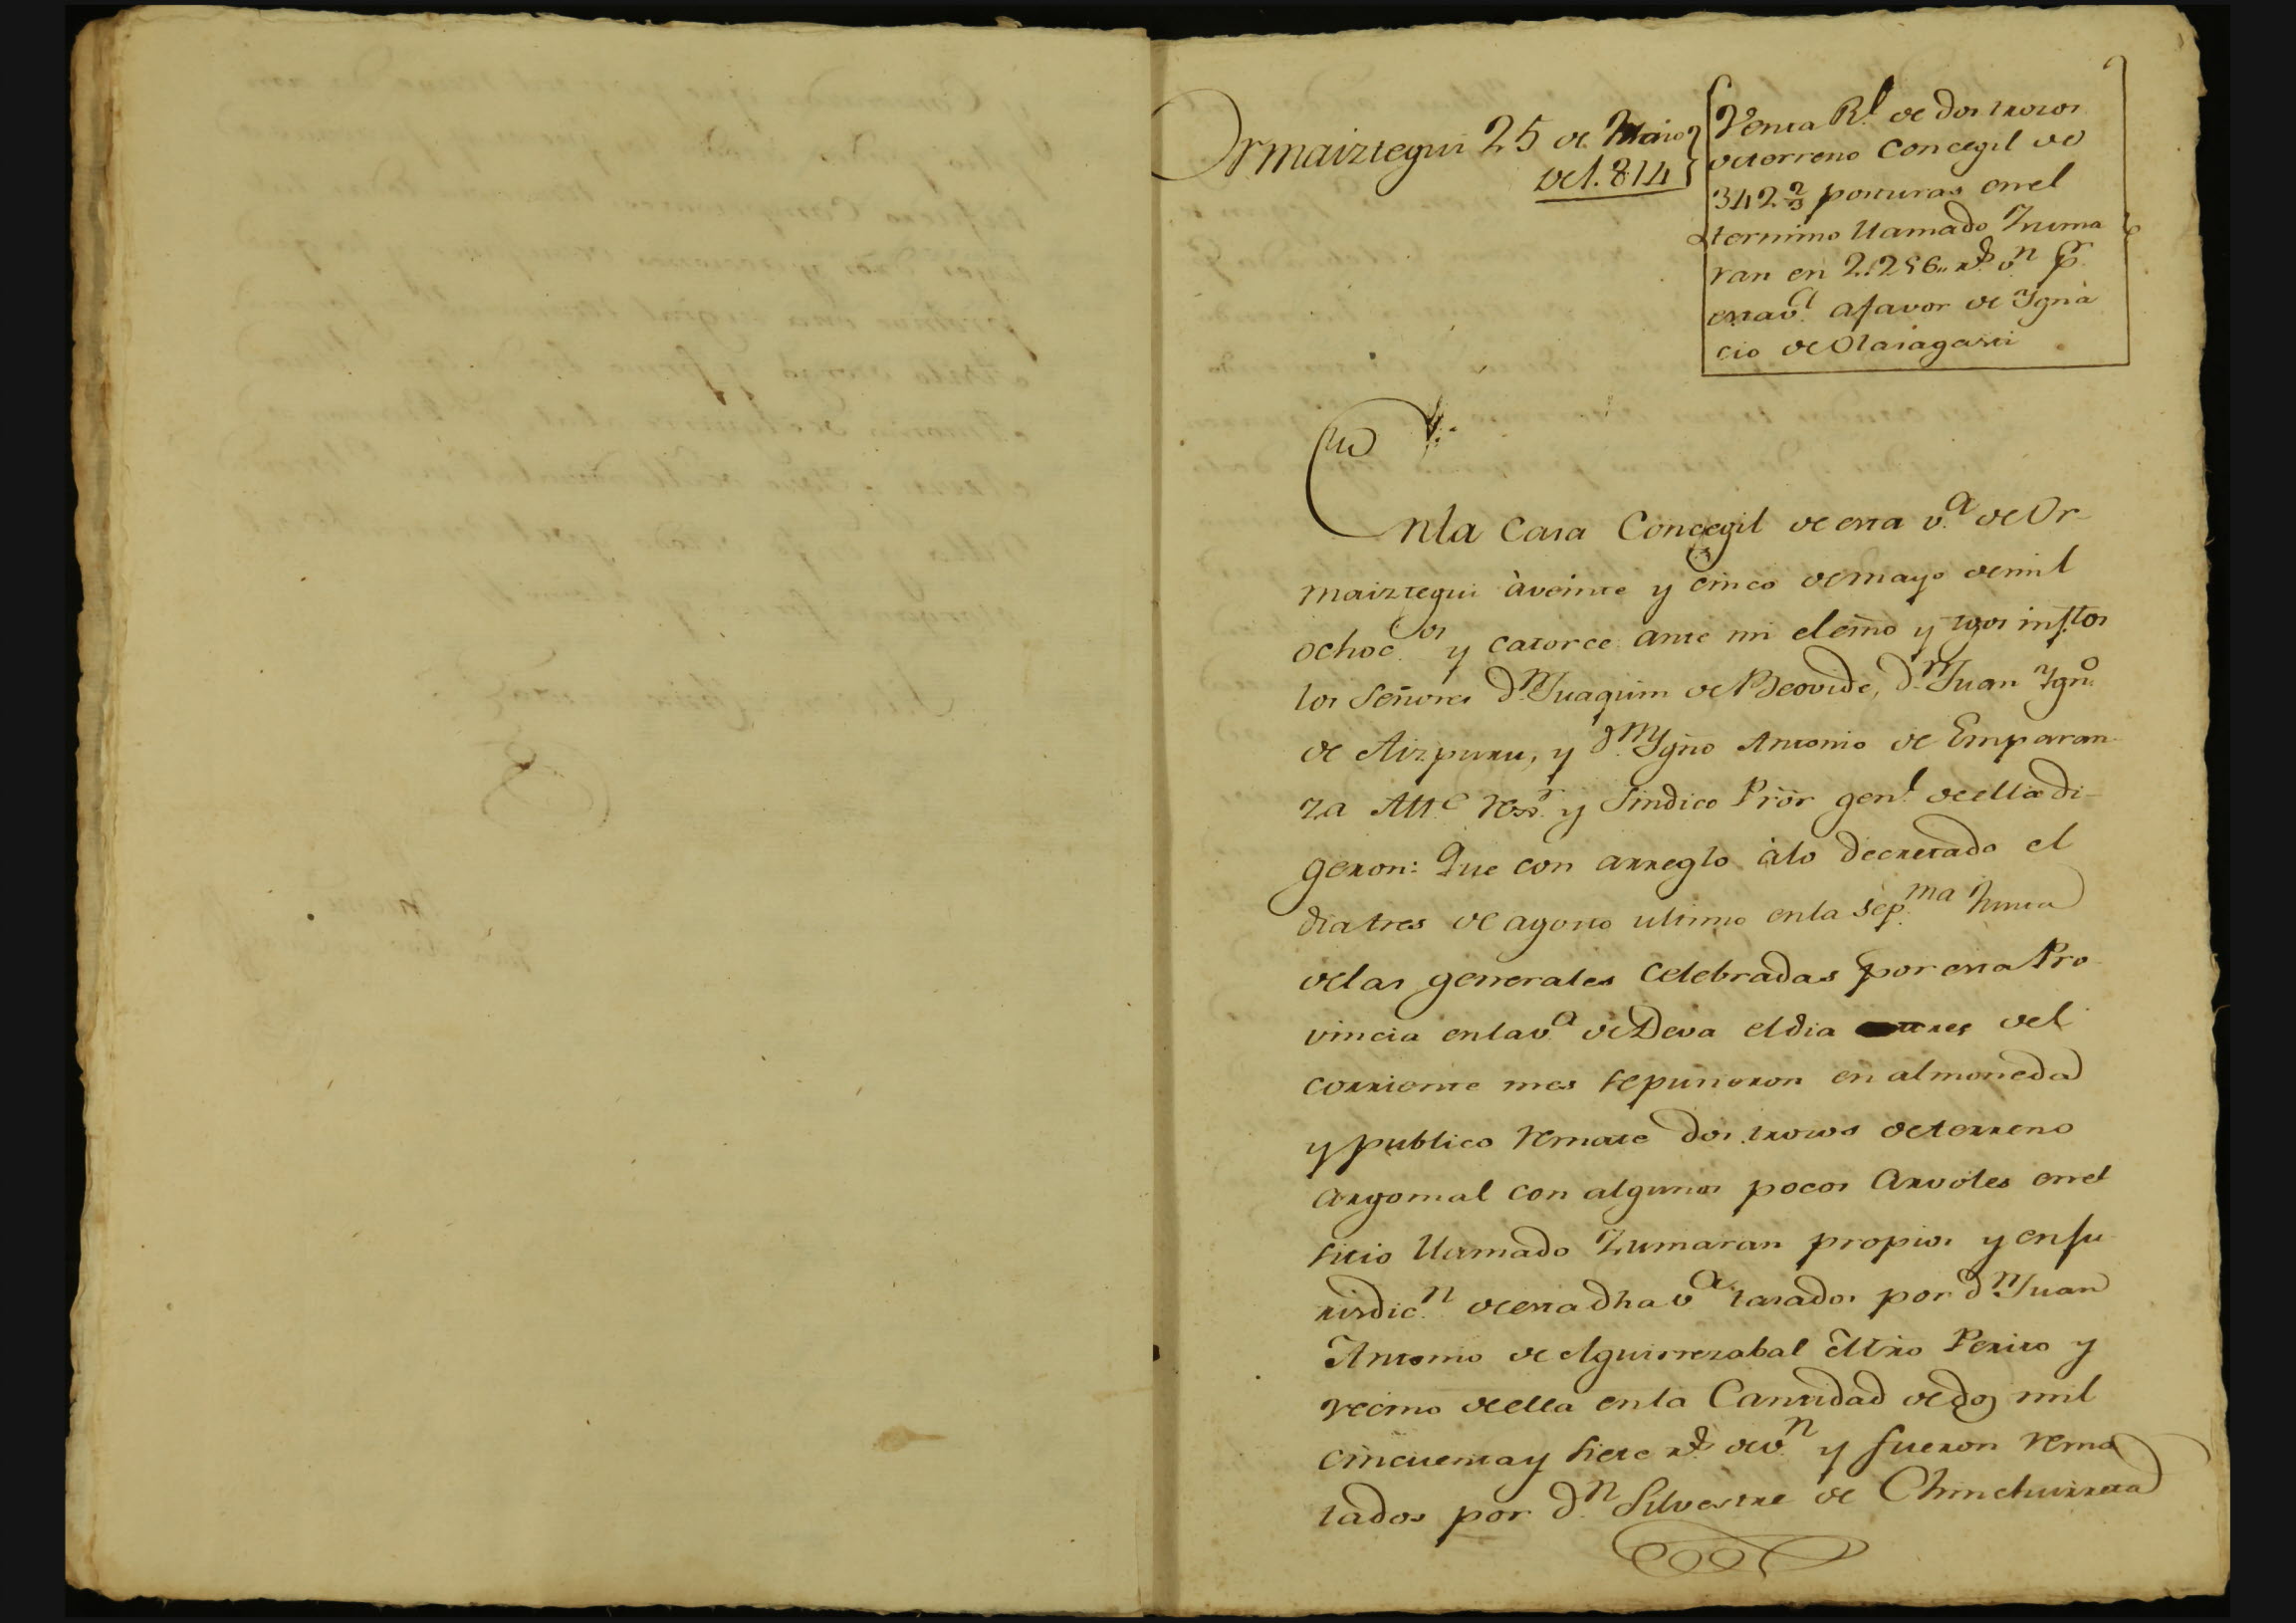 Ormaiztegui 25 de Maio
de 1.814
Venta Rl. de dos trozos
de terreno Concegil de
342 2/3 posturas en el
termino llamado Zuma
ran en 2.256 rs. vn. pr.
esta va. a favor de Igna
cio de Olasagasti
En la Casa Concegil de esta va. de Or-
maiztegui à veinte y cinco de mayo de mil
ochoc.os y catorce ante mi el esño y tgos insttos
los Señores Dn. Juaquin de Beovide, Dn. Juan Ygno.
de Aizpuru, y Dn. Ygño Antonio de Emparan-
za Alle. Rexr. y Sindico Prõr genl. de ella di-
geron: Que con arreglo à lo decretado el
dia tres de agosto ultimo en la sepma. Junta
de las generales celebradas por esta Pro
vincia en la va. de Deva el dia tres del
corriente mes se pusieron en almoneda
y publico remate dos trozos de terreno
argomal con algunos pocos arvoles en el
sitio llamado Zumaran propios y en su
risdicn. de esta dha va. tasados por Dn. Juan
Antonio de Aguirrezabal Mro Perito y
vecino de ella en la Cantidad de dos mil
cincuenta y siete rs. de vn. y fueron rema
tados por Dn. Silvestre de Chinchurreta